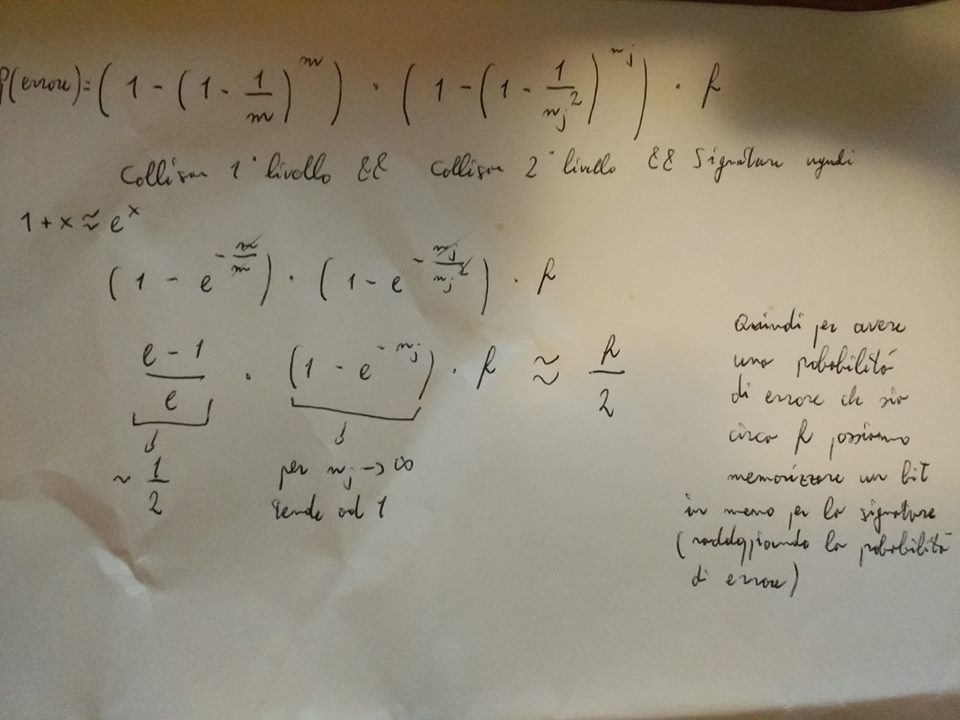 P(errore) = (1 - (1 - 1/m)^m) · (1 - (1 - 1/m_j^2)^m_j) · f
Collision 1° livello && Collision 2° livello && Signature uguali
1 + x ≈ e^x
(1 - e^(-m/m)) · (1 - e^(-m_j/m_j^2)) · f
(e - 1)/e · (1 - e^(-m_j)) · f ≈ f/2
~ 1/2
per m_j → ∞
tende ad 1
Quindi per avere
una probabilità
di errore che sia
circa f possiamo
memorizzare un bit
in meno per la signature
(raddoppiando la probabilità
di errore)